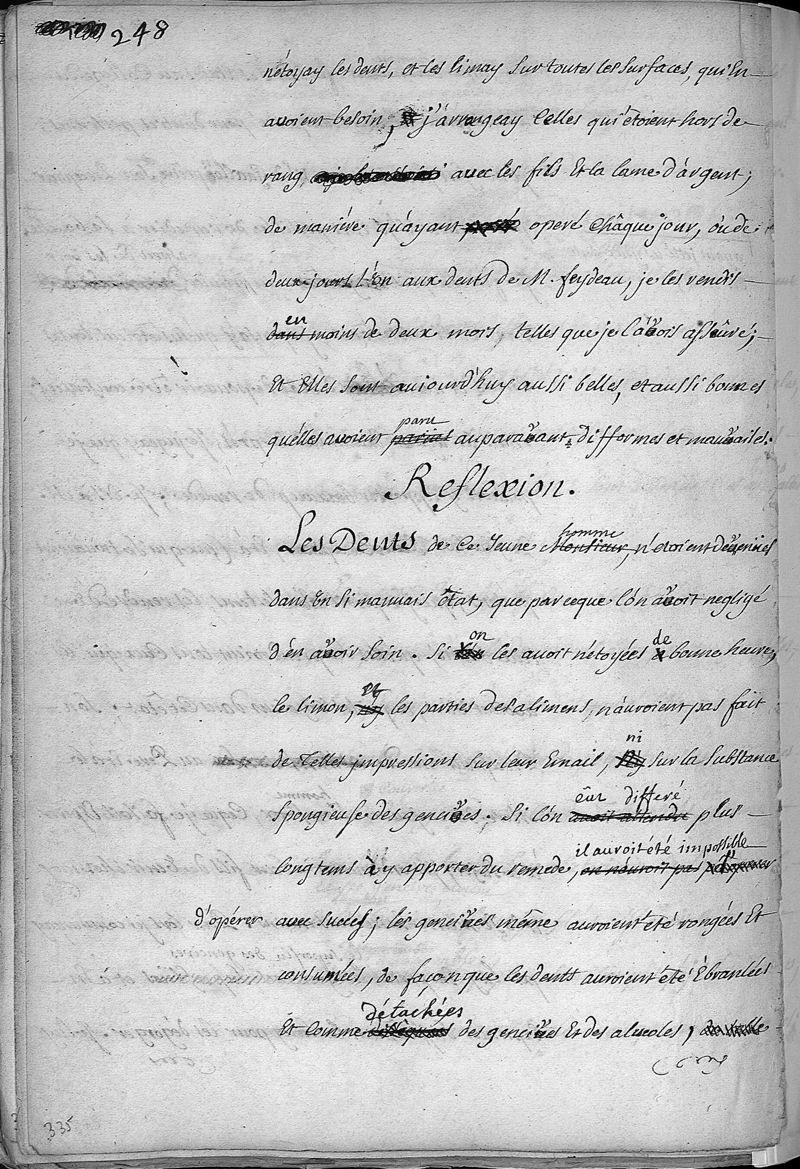 248
nétoyay les dents, et les limay sur toutes les surfaces, qui En
avoient besoin, j'árrangeay Celles qui étoient hors de
rang, avec les fils Et la lame d'argent;
de maniére qu'ayant operé Chàque jour, ou de
deux jours l'ún aux dents de M. feydeau, je les rendis
dans en moins de deux mois, telles que je l'avois assûré;
Et Elles sont aujourd'huy aussi belles, et aussi bonnes
qu'élles avoient paru auparavant difformes et mauvaises.
Reflexion.
Les Dents de Ce Jeune Monsieur homme, n'étoient devenües
dans Un si mauvais état, que parceque l'ón avoit negligé
d'én avoir soin. Si on les avoit nétoyées de bonne heure,
le limon, et les parties des alimens, n'auroient pas fait
de Telles jmpressions sur leur Email, ni sur la substance
spongieuse des gencives. Si l'ón avoit attendu eût differé plus
longtems à y apporter du remede, on n'auroit pas il auroit été impossible
d'opérer avec succés; les gencives même auroient été rongées Et
consumées, de façon que les dents auroient été Ebranlées
Et Comme détachées des gencives Et des alveoles,
335